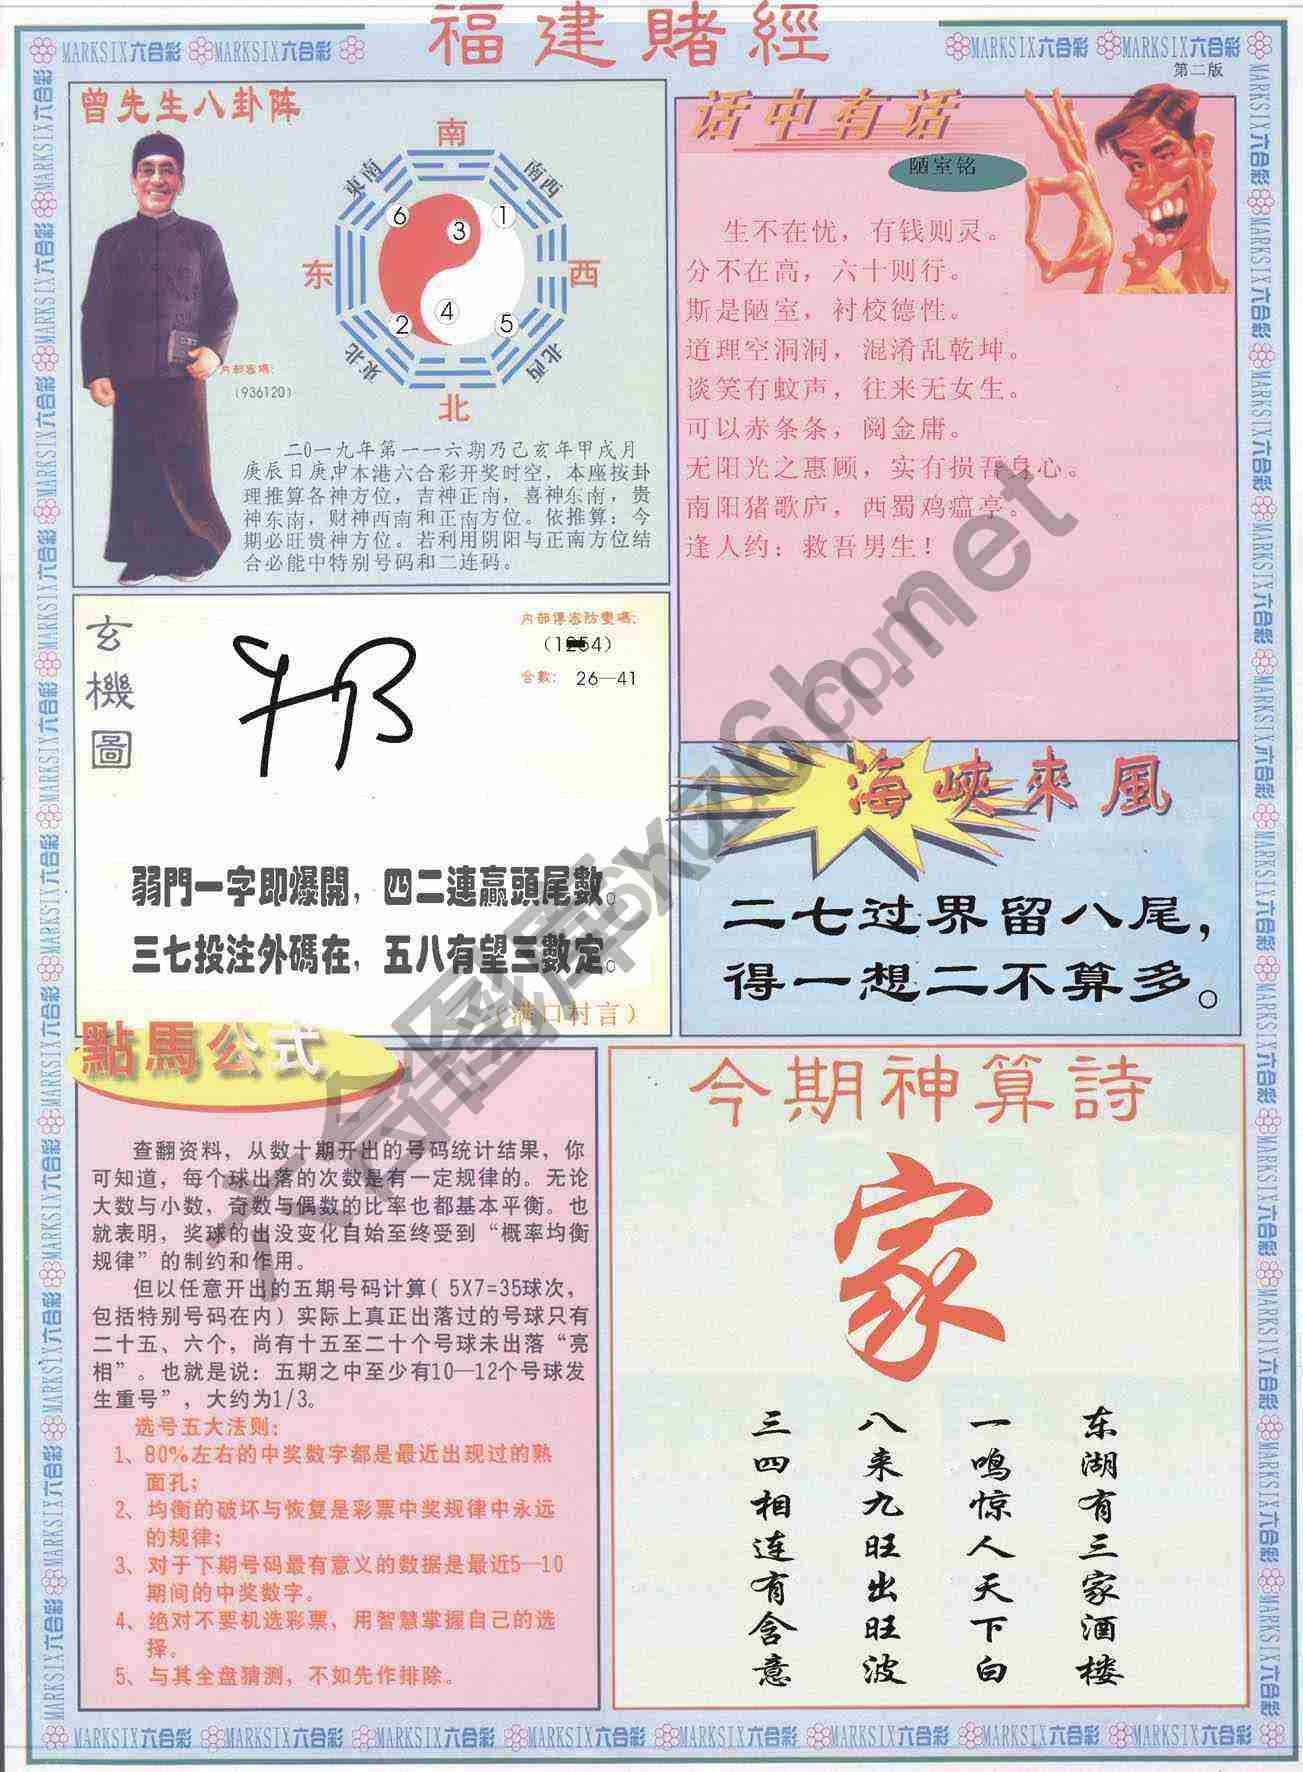 福建賭經
MARKSIX六合彩 MARKSIX六合彩
MARKSIX六合彩 MARKSIX六合彩
第二版
曾先生八卦阵
南
東南
南西
6
3
1
东
西
4
2
5
東北
北西
北
内部密碼：
(936120)
二0一九年第一一六期乃己亥年甲戌月
庚辰日庚申本港六合彩开奖时空，本座按卦
理推算各神方位，吉神正南，喜神东南，贵
神东南，财神西南和正南方位。依推算：今
期必旺贵神方位。若利用阴阳与正南方位结
合必能中特别号码和二连码。
话中有话
陋室铭
生不在忧，有钱则灵。
分不在高，六十则行。
斯是陋室，衬校德性。
道理空洞洞，混淆乱乾坤。
谈笑有蚊声，往来无女生。
可以赤条条，阅金庸。
无阳光之惠顾，实有损吾身心。
南阳猪歌庐，西蜀鸡瘟亭。
逢人约：救吾男生！
玄機圖
内部傳密防變碼：
合數： 26—41
弱門一字即爆開，四二連贏頭尾數。
三七投注外碼在，五八有望三數定。
（满口村言）
海峽來風
二七过界留八尾，
得一想二不算多。
點馬公式
查翻资料，从数十期开出的号码统计结果，你
可知道，每个球出落的次数是有一定规律的。无论
大数与小数，奇数与偶数的比率也都基本平衡。也
就表明，奖球的出没变化自始至终受到“概率均衡
规律”的制约和作用。
但以任意开出的五期号码计算( 5X7=35球次，
包括特别号码在内）实际上真正出落过的号球只有
二十五、六个，尚有十五至二十个号球未出落“亮
相”。也就是说：五期之中至少有10—12个号球发
生重号”，大约为1/3。
选号五大法则：
1、80%左右的中奖数字都是最近出现过的熟
面孔；
2、均衡的破坏与恢复是彩票中奖规律中永远
的规律；
3、对于下期号码最有意义的数据是最近5—10
期间的中奖数字。
4、绝对不要机选彩票，用智慧掌握自己的选
择。
5、与其全盘猜测，不如先作排除。
今期神算詩
家
东湖有三家酒楼
一鸣惊人天下白
八来九旺出旺波
三四相连有含意
MARKSIX六合彩 MARKSIX六合彩 MARKSIX六合彩 MARKSIX六合彩 MARKSIX六合彩 MARKSIX六合彩 MARKSIX六合彩 MARKSIX六合彩